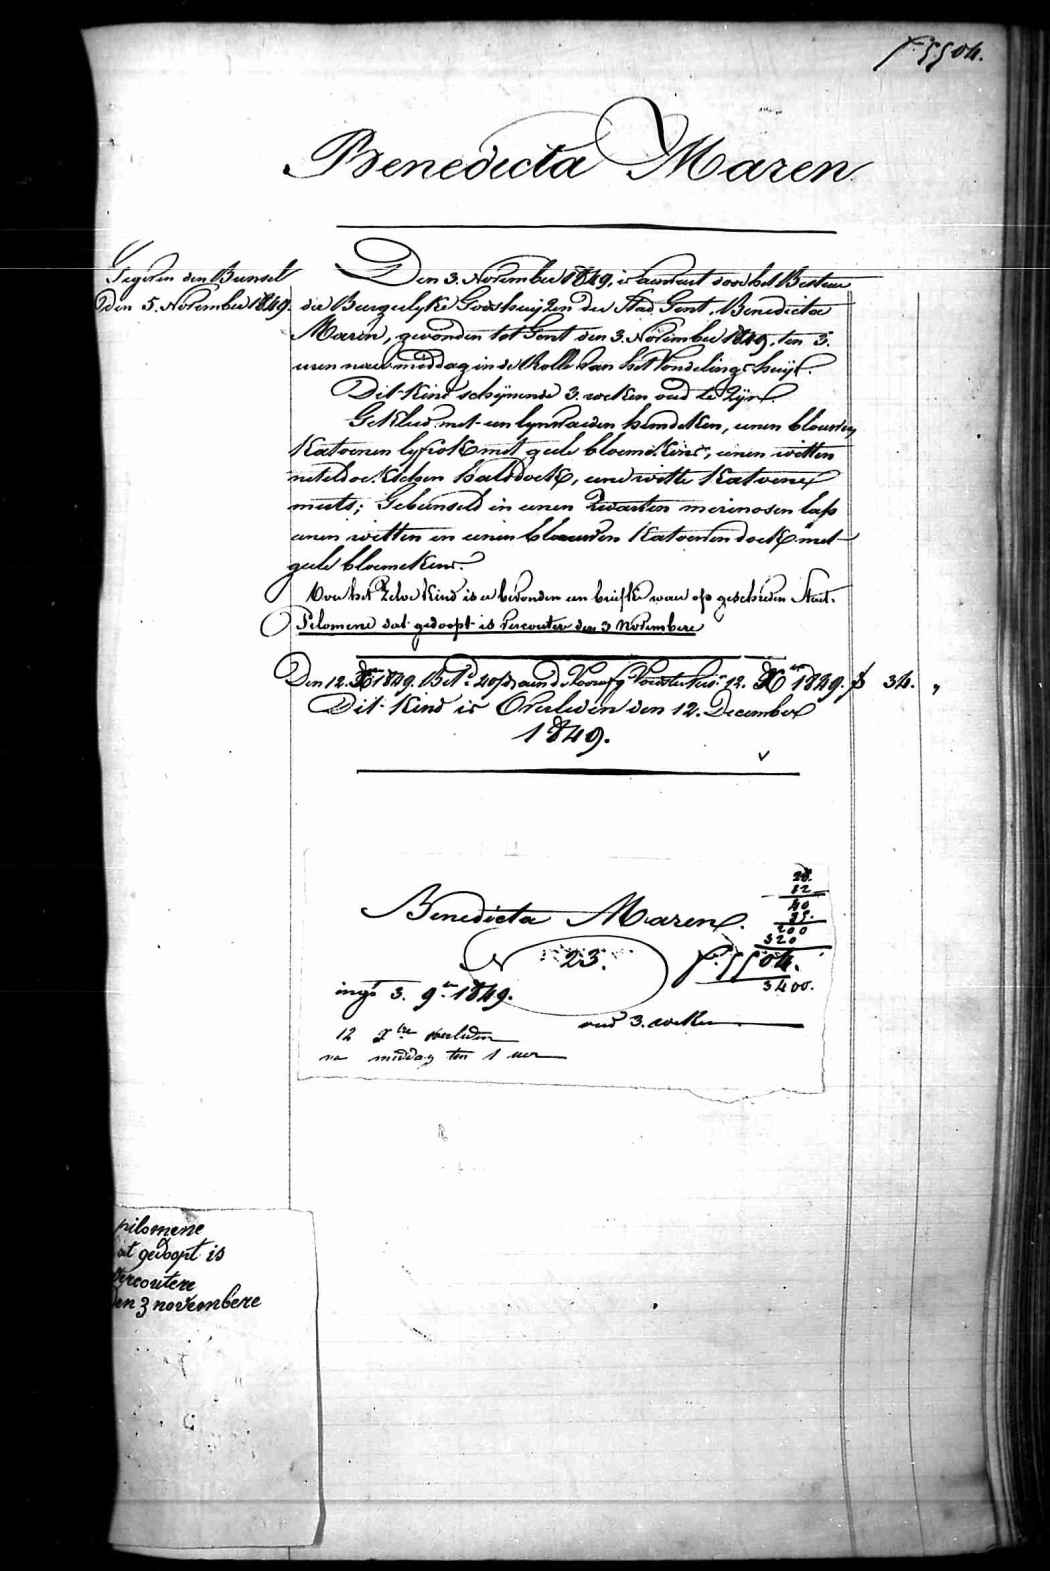 f° 5504.
Benedicta Maren
Gegeven den Bunsel
Den 5. November 1849.
Den 3. November 1849, is aenveert door het Bestuur
der Burgerlyke Godshuyzen der Stad Gent, Benedicta
Maren, gevonden tot Gent den 3. November 1849, ten 3.
uren naermiddag in de Rolle van het Vondelingshuys.
Dit Kind schynende 3. weken oud te zyn.
Gekleed met een lynwaeden hemdeken, eenen blauwen
Katoenen lyfrok met geele bloemekens, eenen witten
neteldoekschen halsdoek, eene witte Katoene
muts; Gebunseld in eenen Zwarten merinosen laps
eenen witten en eenen blauwen Katoenen doek met
geele bloemekens.
Voor het zelve Kind is er bevonden een briefke waer op geschreven staet.
Pilomene dat gedoopt is vercouter den 3 novembere
Den 12. Xber 1849. Bet. 40 12. Xber 1849. f 34. "
Dit Kind is Overleden den 12. December
1849.
Benedicta Maren.
28.
12
40
85.
200
320
3400.
N 23.
f° 5504.
ings 3. 9ber 1849.
oud 3. weken
12 Xbre overleden
na middag ten 1 uer
pilomene
at gedoopt is
vercoutere
den 3 novembere